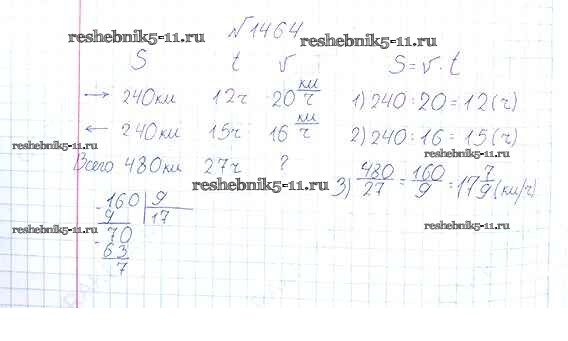 №1464
reshebnik5-11.ru
reshebnik5-11.ru
S t v S=v·t
→ 240км 12ч 20 км/ч 1) 240:20=12(ч)
reshebnik5-11.ru
reshebnik5-11.ru
← 240км 15ч 16 км/ч 2) 240:16=15(ч)
Всего 480км 27ч ? 3) 480/27=160/9=17 7/9(км/ч)
reshebnik5-11.ru
-160 9
9 17
reshebnik5-11.ru
reshebnik5-11.ru
-70
63
7